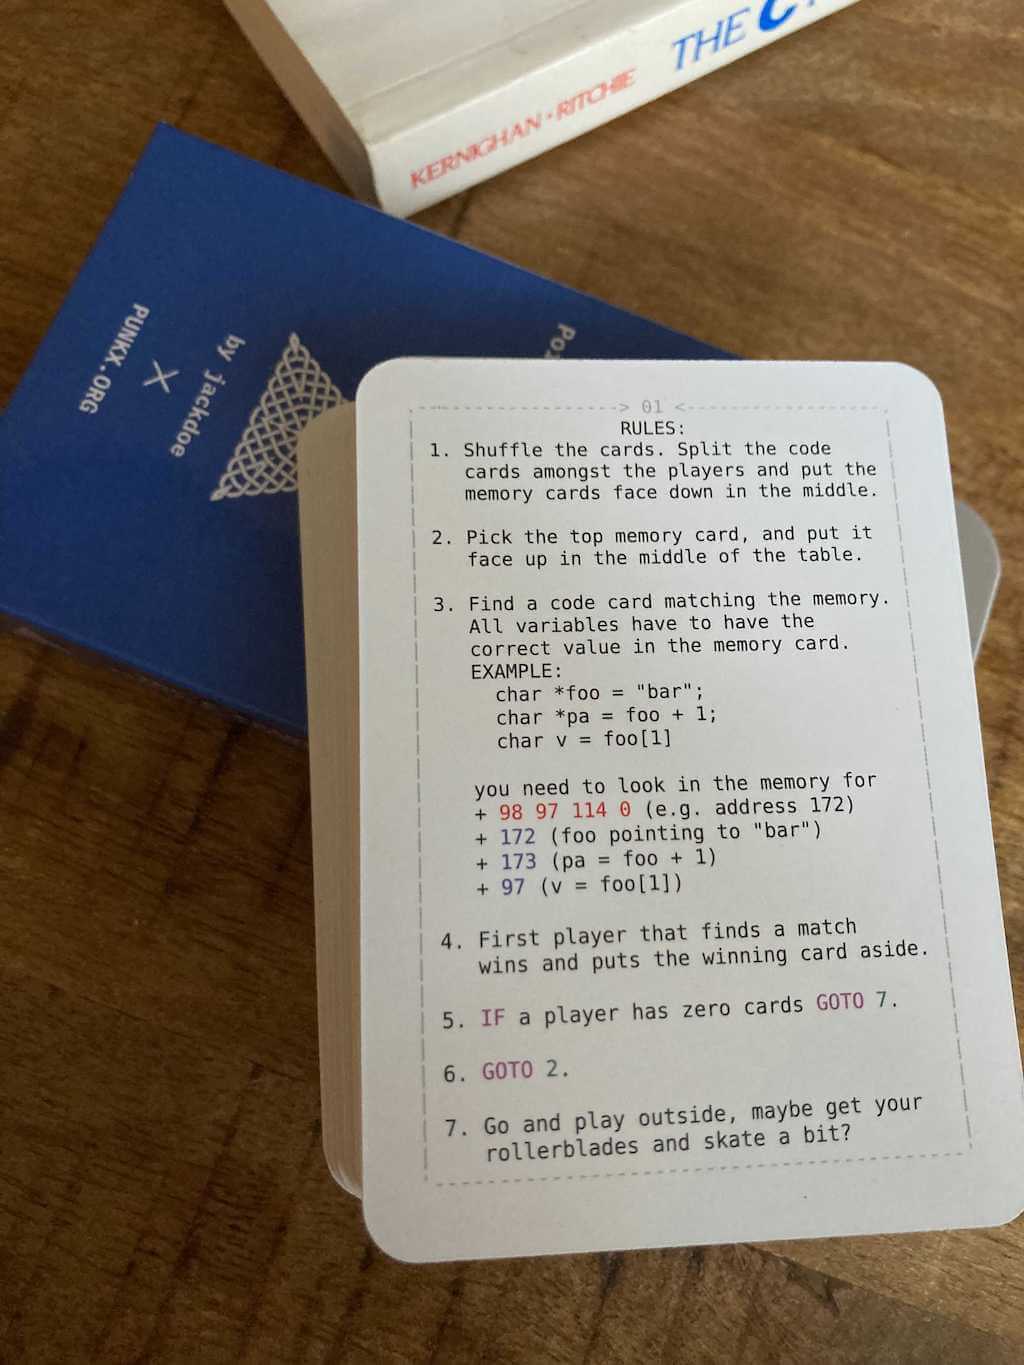 THE C
KERNIGHAN • RITCHIE
PUNKX.ORG
X
by jackdoe
-----------------> 01 <-----------------
RULES:
1. Shuffle the cards. Split the code
cards amongst the players and put the
memory cards face down in the middle.
2. Pick the top memory card, and put it
face up in the middle of the table.
3. Find a code card matching the memory.
All variables have to have the
correct value in the memory card.
EXAMPLE:
char *foo = "bar";
char *pa = foo + 1;
char v = foo[1]
you need to look in the memory for
+ 98 97 114 0 (e.g. address 172)
+ 172 (foo pointing to "bar")
+ 173 (pa = foo + 1)
+ 97 (v = foo[1])
4. First player that finds a match
wins and puts the winning card aside.
5. IF a player has zero cards GOTO 7.
6. GOTO 2.
7. Go and play outside, maybe get your
rollerblades and skate a bit?